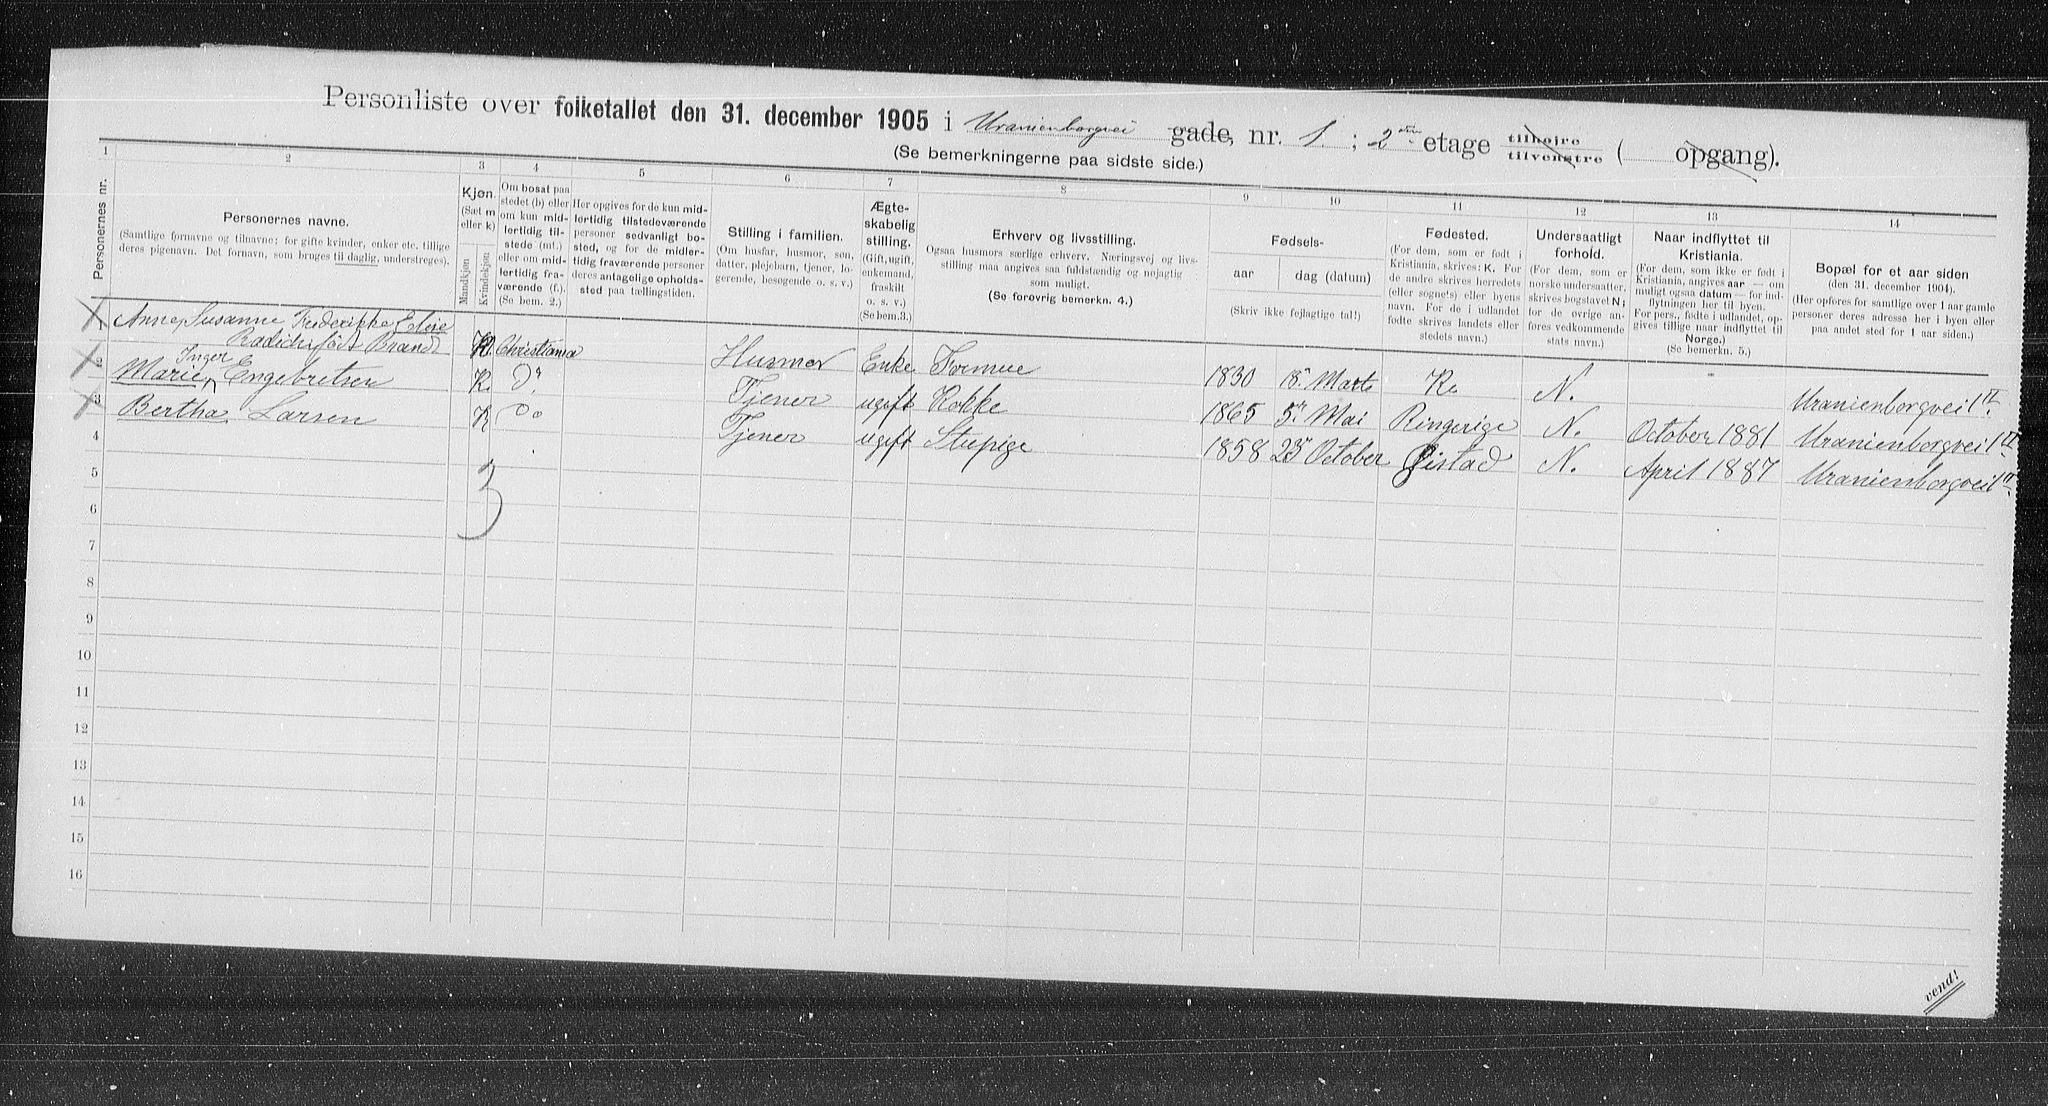 Personliste over folketallet den 31. december 1905 i Uranienborgvei gade, nr. 1. ; 2den etage tilhøjre tilvenstre ( opgang).
(Se bemerkningerne paa sidste side.)
1 2 3 4 5 6 7 8 9 10 11 12 13 14
Personernes nr.
Personernes navne.
(Samtlige fornavne og tilnavne; for gifte kvinder, enker etc. tillige
deres pigenavn. Det fornavn, som bruges til daglig, understreges).
Kjøn.
(Sæt m
eller k)
Mandkjøn
Kvindekjøn
Om bosat paa
stedet (b) eller
om kun mid-
lertidig til-
stede (mt.)
eller om mid-
lertidig fra-
værende (f.).
(Se bem. 2.)
Her opgives for de kun mid-
lertidig tilstedeværende
personer sedvanligt bo-
sted, og for de midler-
tidig fraværende personer
deres antagelige opholds-
sted paa tællingstiden.
Stilling i familien.
(Om husfar, husmor, søn,
datter, plejebarn, tjener, lo-
gerende, besøgende o. s. v.)
Ægte-
skabelig
stilling.
(Gift, ugift,
enkemand,
fraskilt
o. s. v.)
(Se bem.3.)
Erhverv og livsstilling.
Ogsaa husmors særlige erhverv. Næringsvej og livs-
stilling maa angives saa fuldstændig og nøjagtig
som muligt.
(Se forøvrig bemerkn. 4.)
Fødsels-
aar
dag (datum)
(Skriv ikke fejlagtige tal!)
Fødested.
(For dem, som er født i
Kristiania, skrives: K. For
de andre skrives herredets
(eller sognets) eller byens
navn. For de i udlandet
fødte skrives landets eller
stedets navn.)
Undersaatligt
forhold.
(For dem, som er
norske undersaatter,
skrives bogstavet N;
for de øvrige an-
føres vedkommende
stats navn.)
Naar indflyttet til
Kristiania.
(For dem, som ikke er født i
Kristiania, angives aar — om
muligt ogsaa datum — for ind-
flytningen her til byen.
For pers., fødte i udlandet, op-
gives tillige naar indflyttet til
Norge.)
(Se bemerkn. 5.)
Bopæl for et aar siden
(den 31. december 1904).
(Her opføres for samtlige over 1 aar gamle
personer deres adresse her i byen eller
paa andet sted for 1 aar siden.)
1 Anne Susanne Frederikke Edsie
født Brand K. Christiania Husmor Enke Formue 1830 18n Marts K. N. Uranienborgvei 1 II.
2 Marie Inger Engebretsen K. Do Tjener ugift Kokke 1865 5n Mai Ringerige N. October 1881 Uranienborgvei 1 II
3 Bertha Larsen K Do Tjener ugift Stupige 1858 23n October N. April 1887 Uranienborgvei 1 II.
4
5
3
6
7
8
9
10
11
12
13
14
15
16
vend!